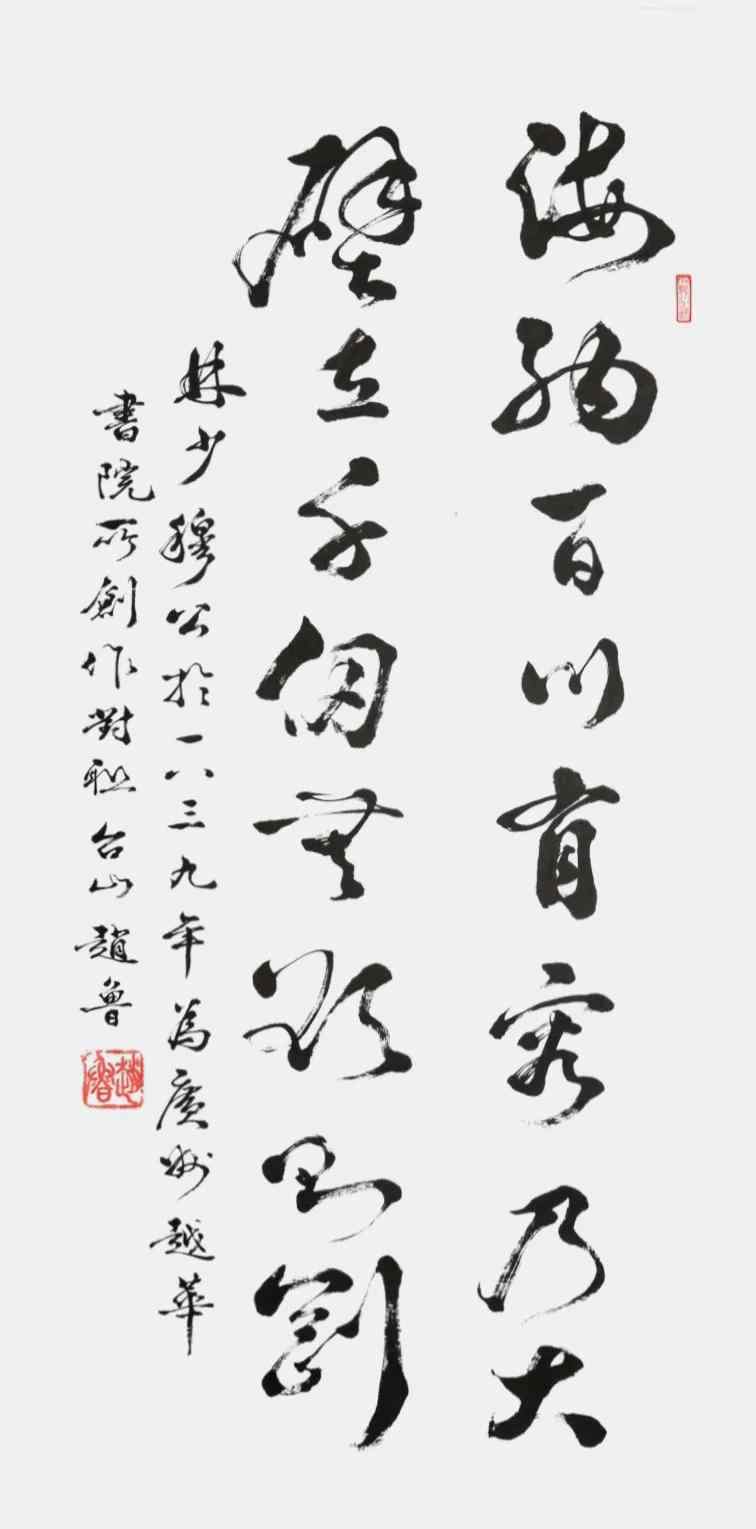 海納百川有容乃大
壁立千仞無欲則剛
林少穆公於一八三九年為廣州越華
書院所創作對聯台山趙魯
趙魯